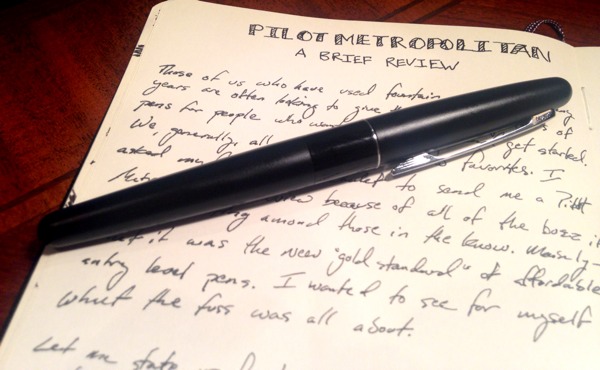 PILOT METROPOLITAN
A BRIEF REVIEW
Those of us who have used fountain
years are often looking to give
pens for people who get started.
We, generally, all favorites. I
asked my to send me a Pilot
because of all of the buzz it
among those in the know. Mainly-
it was the new "gold standard" of affordable
entry level pens. I wanted to see for myself
what the fuss was all about.
Let me state